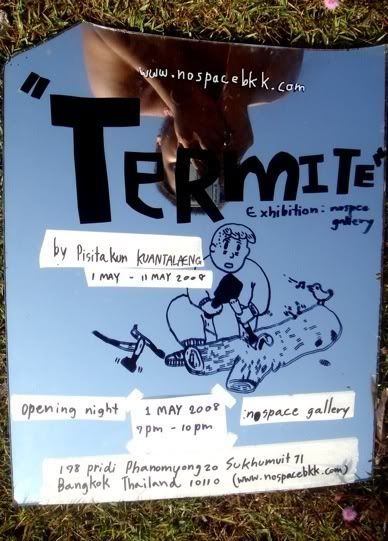 www.nospacebkk.com
"TERMITE"
Exhibition: nospace
gallery
by Pisitakun KUANTALAENG
1 MAY - 11 MAY 2008
opening night
1 MAY 2008
7pm - 10pm
nospace gallery
198 pridi Phanomyong 20 Sukhumvit 71
Bangkok Thailand 10110 (www.nospacebkk.com)